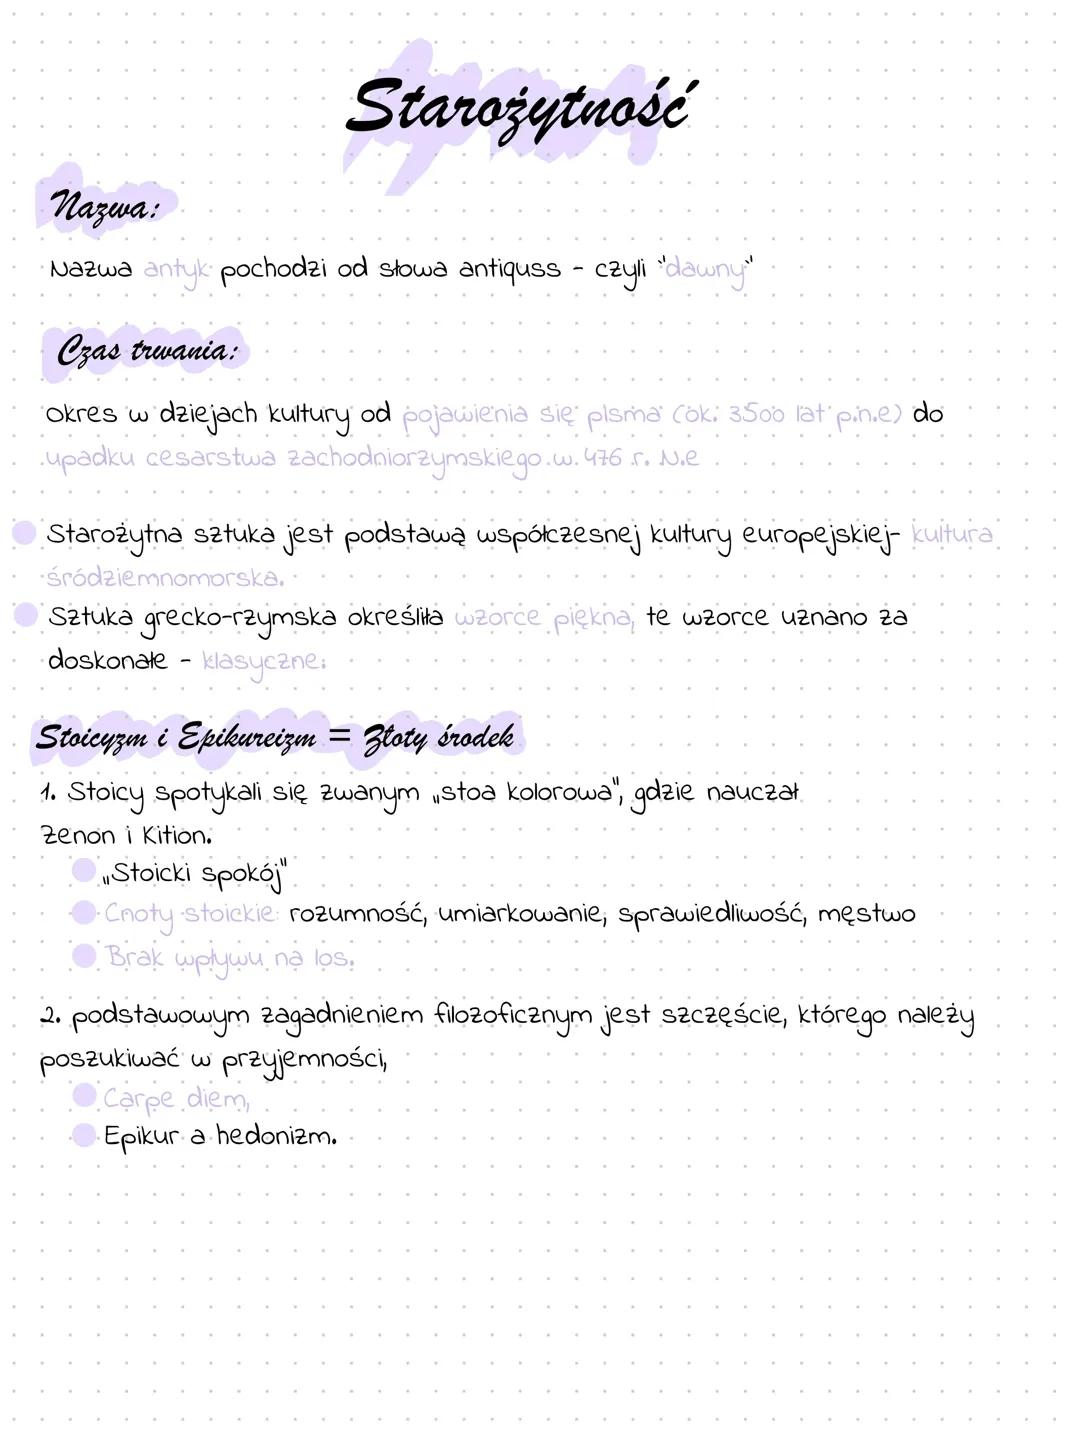 Starożytność
Nazwa:
Nazwa antyk pochodzi od słowa antiquss - czyli "dawny"
Czas trwania:
Okres w dziejach kultury od pojawienia się pisma (ok. 3500 lat p.n.e) do
upadku cesarstwa zachodniorzymskiego w 476 r. N.e
Starożytna sztuka jest podstawą współczesnej kultury europejskiej- kultura
śródziemnomorska.
Sztuka grecko-rzymska określiła wzorce piękna, te wzorce uznano za
doskonałe - klasyczne.
Stoicyzm i Epikureizm = Złoty środek
1. Stoicy spotykali się zwanym „stoa kolorowa", gdzie nauczał
Zenon i Kition.
„Stoicki spokój"
Cnoty stoickie: rozumność, umiarkowanie, sprawiedliwość, męstwo
Brak wpływu na los.
2. podstawowym zagadnieniem filozoficznym jest szczęście, którego należy
poszukiwać w przyjemności,
Carpe diem,
Epikur a hedonizm.